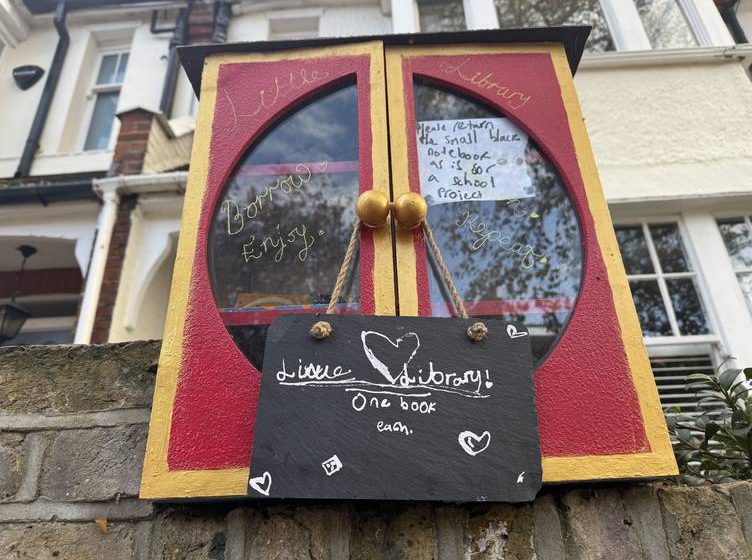 Little
Library
Borrow
Enjoy.
Please return
the small black
notebook
as is for
a school
project
Repeat.
Little Library!
One book
each.